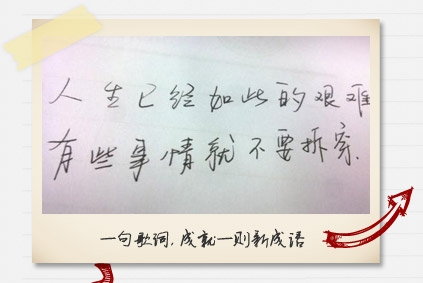 人生已经如此的艰难
有些事情就不要拆穿.
一句歌词,成就一则新成语